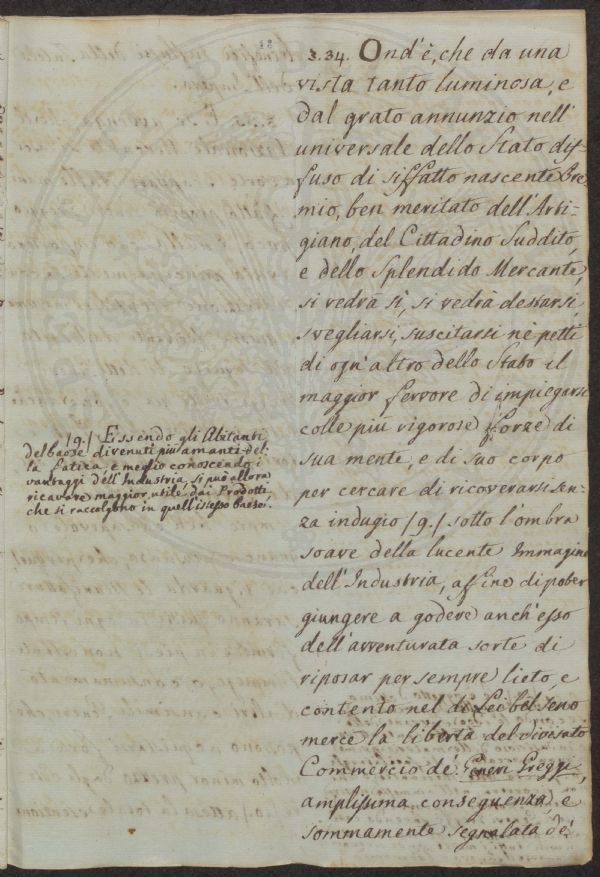 §.34. Ond'è, che da una
vista tanto luminosa, e
dal grato annunzio nell'
universale dello Stato dif-
fuso di siffatto nascente Pre-
mio, ben meritato dell'Arti-
giano, del Cittadino Suddito,
e dello Splendido Mercante,
si vedrà sì, si vedrà destarsi,
svegliarsi, suscitarsi nè petti
di ogn'altro dello Stato il
maggior fervore di impiegarsi
colle più vigorose forze di
sua mente, e di suo corpo
per cercare di ricoverarsi sen-
za indugio /9./ sotto l'ombra
soave della lucente Immagine
dell'Industria, affine di poter
giungere a godere anch'esso
dell'avventurata sorte di
riposar per sempre lieto, e
contento nel di Lei bel seno
mercè la libertà del divisato
Commercio de' Generi Greggi,
amplissima conseguenza e
sommamente segnalata de'
/9./ Essendo gli Abitanti
del Paese divenuti più amanti del-
la Fatica, e meglio conoscendo i
vantaggi dell'Industria, si può allora
ricavare maggior utile dai Prodotti,
che si raccolgono in quell'istesso Paese.